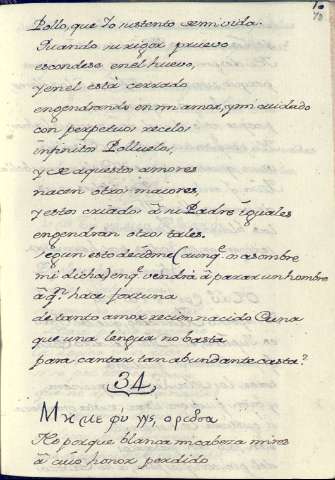 Pollo, que Yo sustento de mi vida.
Quando su rigor pruevo
escondese en el huevo,
y en el està cerrado
engendrando en mi amor, y mi cuidado
con perpetuos recelos
infinitos Polluelos,
y de aquestos amores
nacen otros maiores,
y estos criados à su Padre iguales
engendran otros tales.
segun esto decidme (aunq̃. os asombre
mi dicha) enq̃. vendrà à parar un hombre
à q.n hace fortuna
de tanto amor recien nacido Cuna
que una lengua no basta
para cantar tan abundante casta?
34
Μη με φυ γης, ορεδσα
No porque blanca mi cabeza mires
à cuio honor perdido